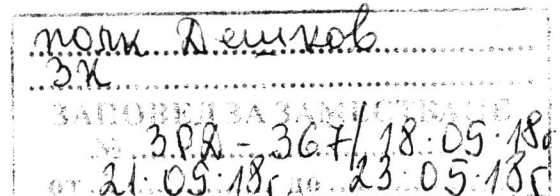 полк Дешков
ЗК
ЗАПОВЕД ЗА ЗАМЕСТВАНЕ
№ 3РД - 367/18.05.18г
от 21.05.18г до 23.05.18г